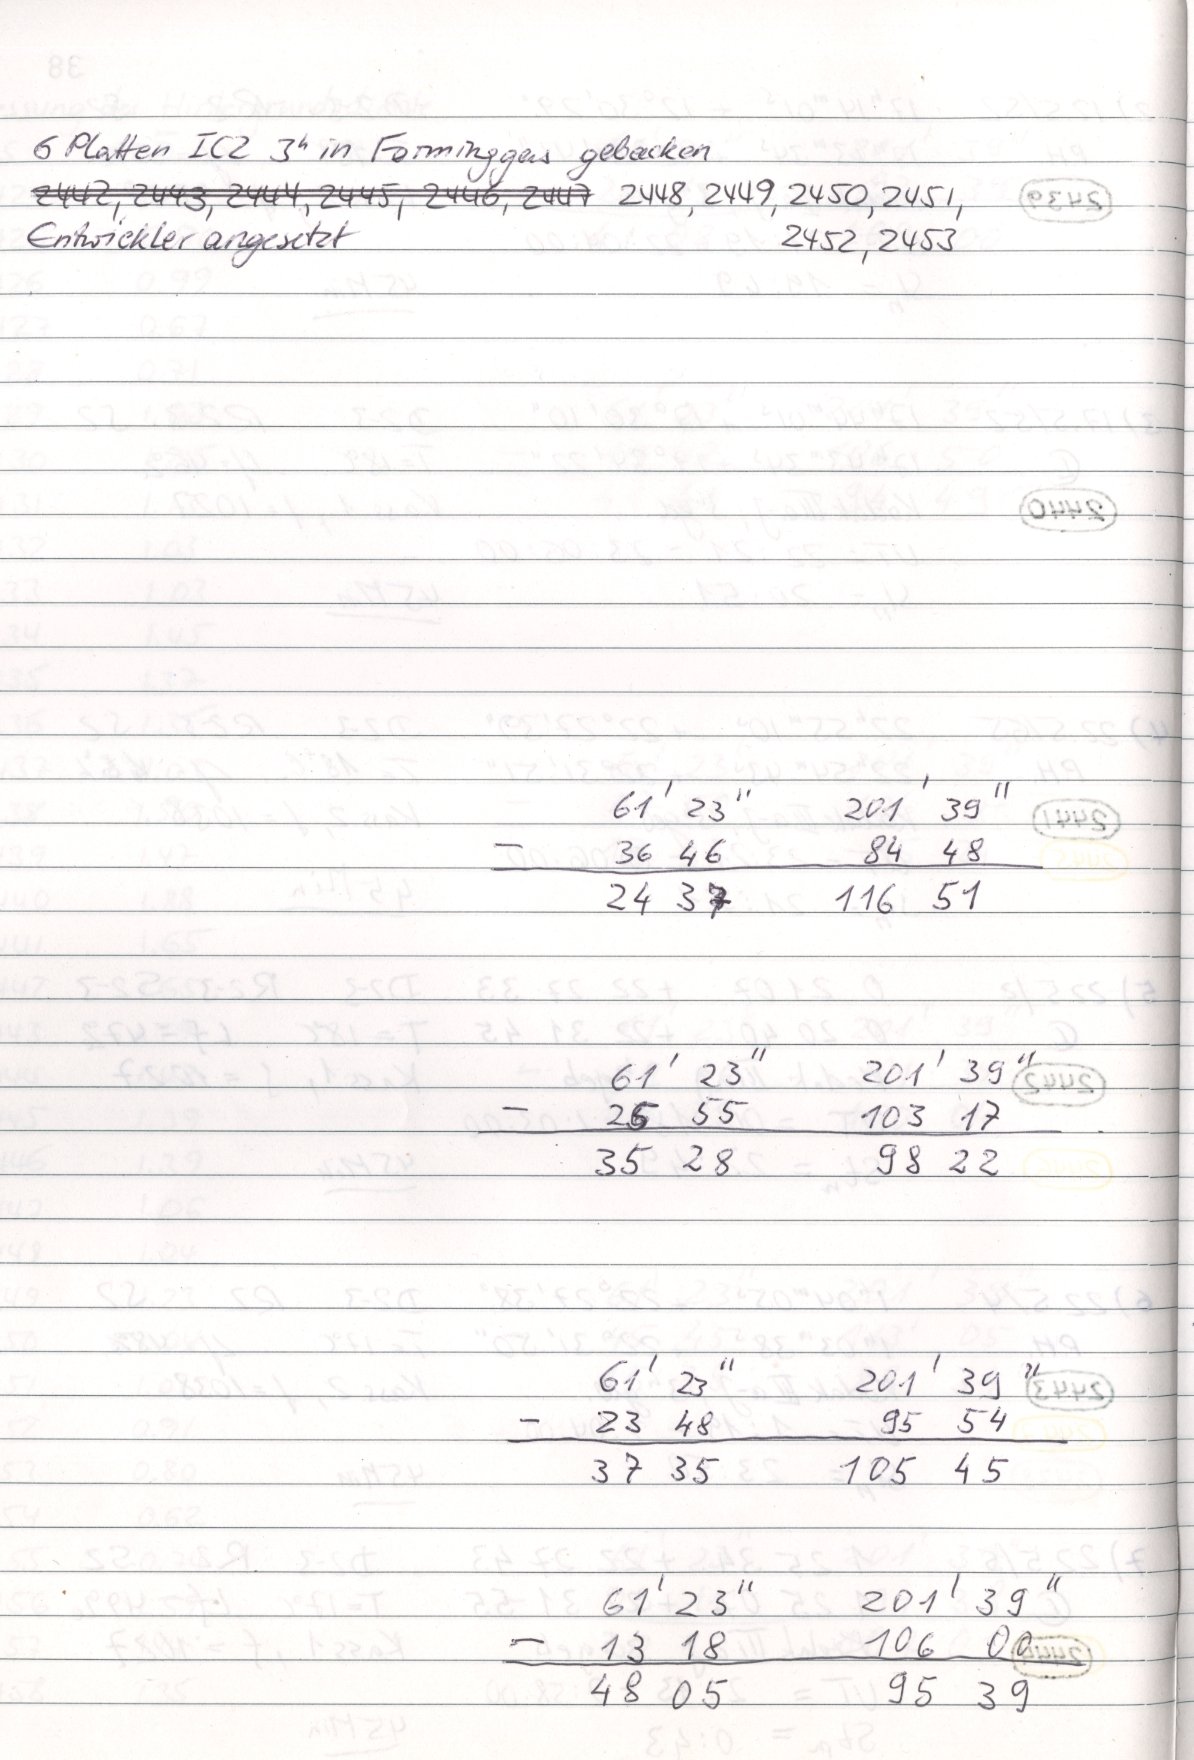 6 Platten IC2 3h in Forminggas gebacken
2442, 2443, 2444, 2445, 2446, 2447 2448, 2449, 2450, 2451,
Entwickler angesetzt 2452, 2453
61' 23" 201' 39"
- 36 46 84 48
24 37 116 51
61' 23" 201' 39"
- 25 55 103 17
35 28 98 22
61' 23" 201' 39"
- 23 48 95 54
37 35 105 45
61' 23" 201' 39"
- 13 18 106 00
48 05 95 39